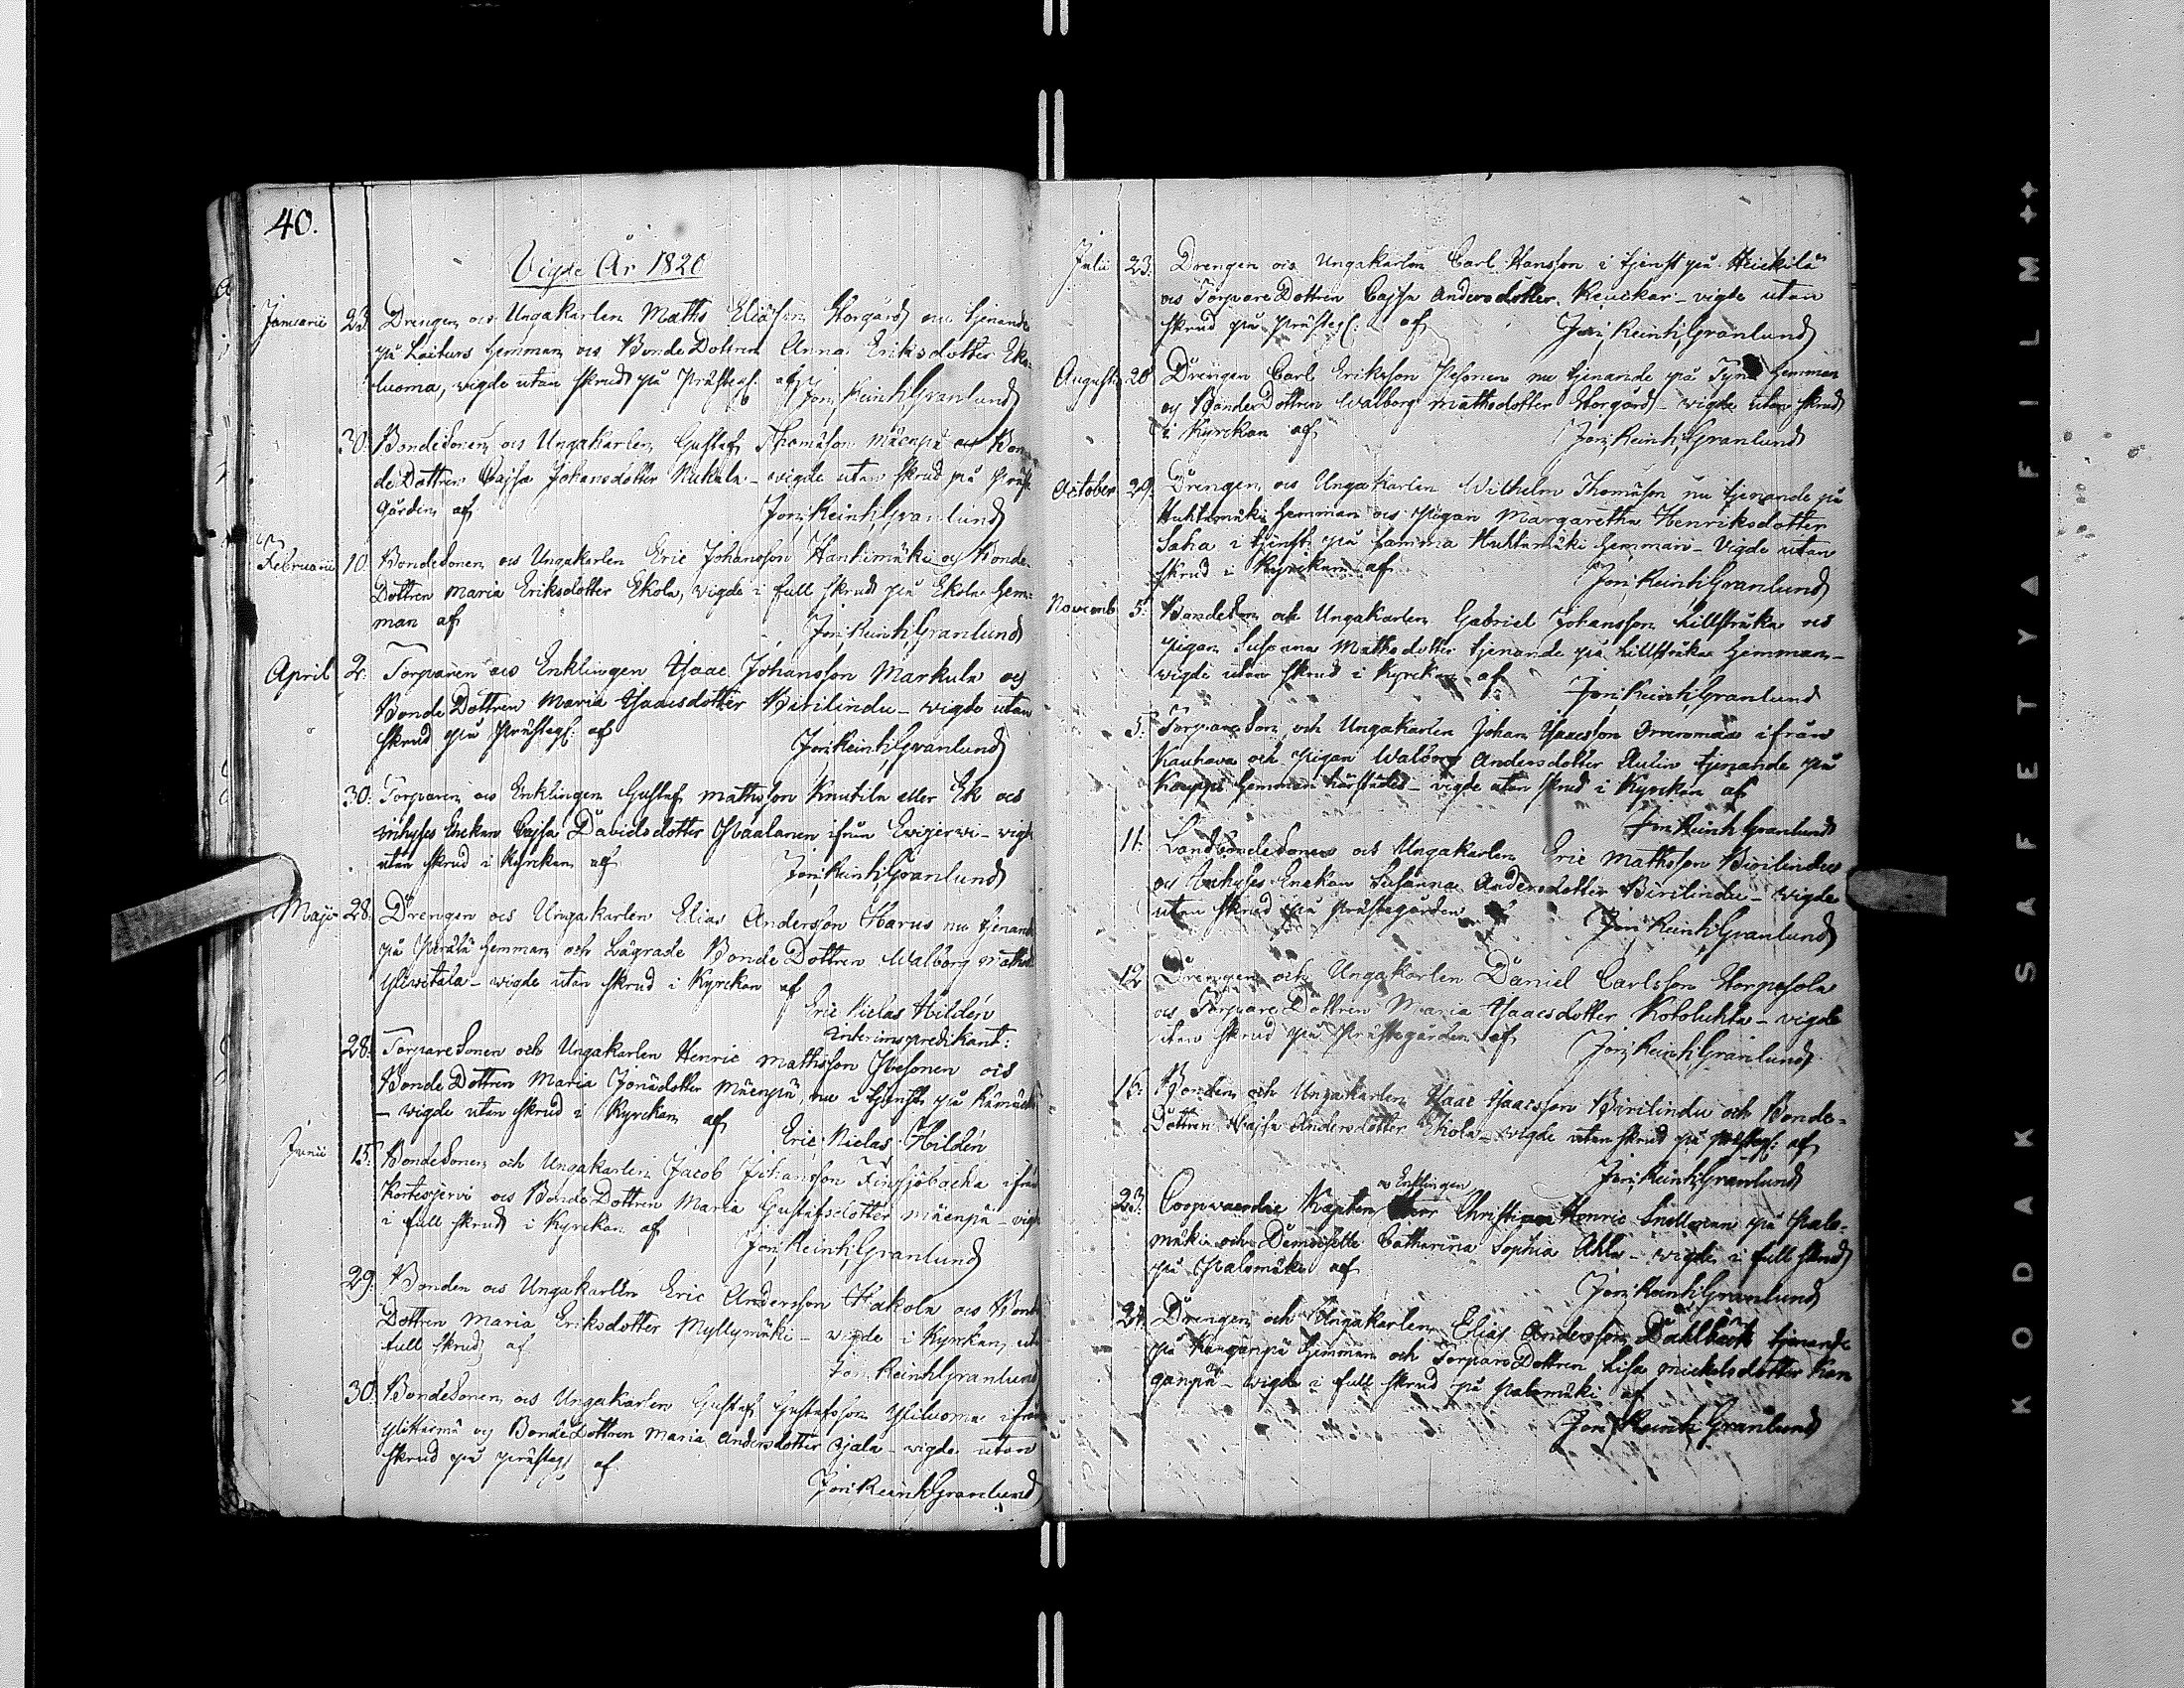 40.
Vigde År 1820
Januarii 23. Drengen och Ungakarlen Matts Eliasson Storgård nu tjenande
på Laiturs hemman och BondeDottren Anna Eriksdotter Eko-
luoma, vigde utan skrud på Prästeg: af Jon: Reinh: Granlund
30. BondeSonen och Ungakarlen Gustaf Thomasson Mäenpä och Bon-
deDottren Cajsa Johansdotter Nukala - vigde utan skrud på Präst-
Gården af Jon: Reinh: Granlund
Februarii 10. BondeSonen och Ungakarlen Eric Johansson Hantimäki och Bonde-
Dottren Maria Eriksdotter Ekola, vigde i full skrud på Ekola Hem-
man af Jon: Reinh: Granlund
April 2. Torparen och Enklingen Isaac Johansson Markula och
BondeDottren Maria Isaacsdotter Birilindu - vigde utan
skrud på Prästeg: af Jon: Reinh: Granlund
30. Torparen och Enklingen Gustaf Mathsson Knutila eller Ek och
Inhyses Enckan Cajsa Davidsdotter ifrån Evijerwi - vigde
utan skrud i Kyrckan af Jon: Reinh: Granlund
Maji 28. Drengen och Ungakarlen Elias Andersson Harus nu tjenande
på Perälä hemman och Lägrade BondeDottren Walborg Mathsd:
Yliwitala - vigde utan skrud i Kyrckan af
Eric Niclas Hildén
interimspredikant:
28. TorpareSonen och Ungakarlen Henric Mathsson Pesonen och
BondeDottren Maria Jonædotter Mäenpä, nu i tjenst på
- vigde utan skrud i Kyrckan af Eric Niclas Hildén
Junii 15. BondeSonen och Ungakarlen Jacob Johansson Fingjöbacka ifrån
Kortesjervi och BondeDottren Maria Gustafsdotter Mäenpä - vigde
i full skrud i Kyrckan af Jon: Reinh: Granlund
29. Bonden och Ungakarlen Eric Andersson Hakola och Bonde
Dottren Maria Eriksdotter Myllymäki - vigde i Kyrckan utan
full skrud af
Jon: Reinh: Granlund
30. BondeSonen och Ungakarlen Gustaf Gustafsson Yliluoma ifrån
Ylihärmä och BondeDottren Maria Andersdotter Ojala - vigde utan
skrud på Prästeg: af
Jon: Reinh: Granlund
Julii 23. Drengen och Ungakarlen Carl Hansson i tjenst på Heickilä
och TorpareDottren Cajsa Andersdotter Keuckar - vigde utan
skrud på Prästeg: af Jon: Reinh: Granlund
Augusti 20 Drengen Carl Eriksson Pesonen nu tjenande på Hemman
och BondeDottren Walborg Mathsdotter Storgård - vigde utan skrud
i Kyrckan af Jon: Reinh: Granlund
October 29. Drengen och Ungakarlen Wilhelm Thomasson nu tjenande på
Huhtamäki Hemman och Pigan Margaretha Henriksdotter
Saha i tjenst på samma Huhtamäki Hemman - Vigde utan
skrud i Kyrckan af Jon: Reinh: Granlund
Novemb: 5. BondeSon och Ungakarlen Gabriel Johansson Lillstråka och
Pigan Susanna Mathsdotter tjenande på Lillstråka Hemman -
vigde utan skrud i Kyrckan af Jon: Reinh: Granlund
5. TorpareSon och Ungakarlen Johan Isaacsson ifrån
Kauhava och Pigan Walborg Andersdotter tjenande på
Kauppi Hemman härstädes - vigde utan skrud i Kyrckan af
Jon: Reinh: Granlund
11. LandbondeSonen och Ungakarlen Eric Mathsson Birilindu
och Inhyses Enckan Susanna Andersdotter Birilindu - vigde
utan skrud på Prästegården af Jon: Reinh: Granlund
12 Drengen och Ungakarlen Daniel Carlsson Storpesola
och TorpareDottren Maria Isaacsdotter Kotoluhta - vigde
utan skrud på Prästegården af Jon: Reinh: Granlund
Bonden och Ungakarlen Isaac Isaacsson Birilindu och Bonde-
Dottren Cajsa Andersdotter Ekola - vigde utan skrud på Prästeg: af
Jon: Reinh: Granlund
och Enklingen
23. Coopvaerdie Kapten Herr Christian Henric Snellman på Palo-
mäki och Demoiselle Catharina Sophia Ahla - vigde i full skrud
på Palomäki af
Jon: Reinh: Granlund
24. Drengen och Ungakarlen Elias Andersson Dahlbäck tjenande
på Kanganpä Hemman och TorpareDottren Lisa Mickelsdotter Kan-
ganpä - vigde i full skrud på Palomäki af
Jon: Reinh: Granlund
KODAK SAFETY▲FILM